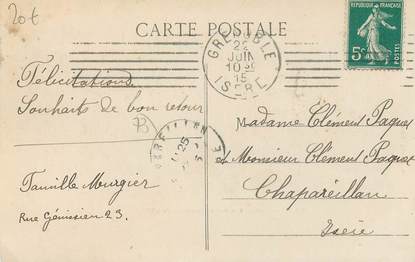 20€
CARTE POSTALE
GRENOBLE
22
JUIN
10 30
15
ISERE
REPUBLIQUE FRANÇAISE
5c
POSTES
Félicitations
Souhaits de bon retour
Famille Murgier
Rue Génissieu 23.
25
Madame Clément Paquet
et Monsieur Clément Paquet
Chapareillan
Isère